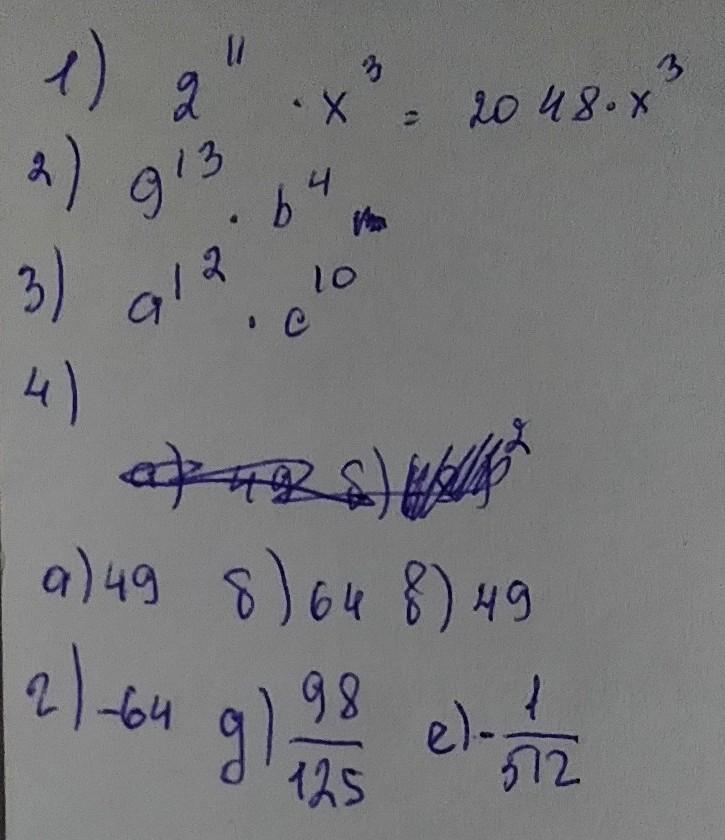 1) 2¹¹ · x³ = 2048 · x³
2) 9¹³ · b⁴
3) a¹² · c¹⁰
4)
а) 49 б) 64 в) 49
г) -64 д) 98/125 е) -1/512